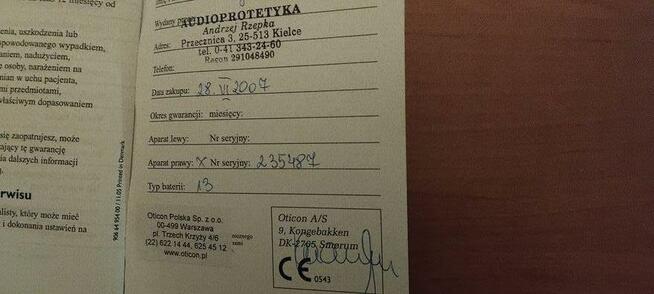 12 miesięcy od
enia, uszkodzenia lub
spowodowanego wypadkiem,
aniem, nadużyciem,
e osoby, narażeniem na
mian w uchu pacjenta,
mi przedmiotami,
właściwym dopasowaniem
się zaopatrujesz, może
ający tę gwarancję
ania dalszych informacji
rwisu
listy, który może mieć
i i dokonania ustawień na
906 64 954 00 / 11.05 Printed in Denmark
Wydany przez:
AUDIOPROTETYKA
Andrzej Rzepka
Adres: Przecznica 3, 25-513 Kielce
tel. 0-41 343-24-60
291048490
Telefon:
Data zakupu: 28. VI 2007
Okres gwarancji: miesięcy:
Aparat lewy: Nr seryjny:
Aparat prawy: X Nr seryjny: 235487
Typ baterii: 13
Oticon Polska Sp. z o.o.
00-499 Warszawa
pl. Trzech Krzyży 4/6
(22) 622 14 44, 625 45 12
www.oticon.pl
Oticon A/S
9, Kongebakken
DK-2765 Smørum
CE 0543